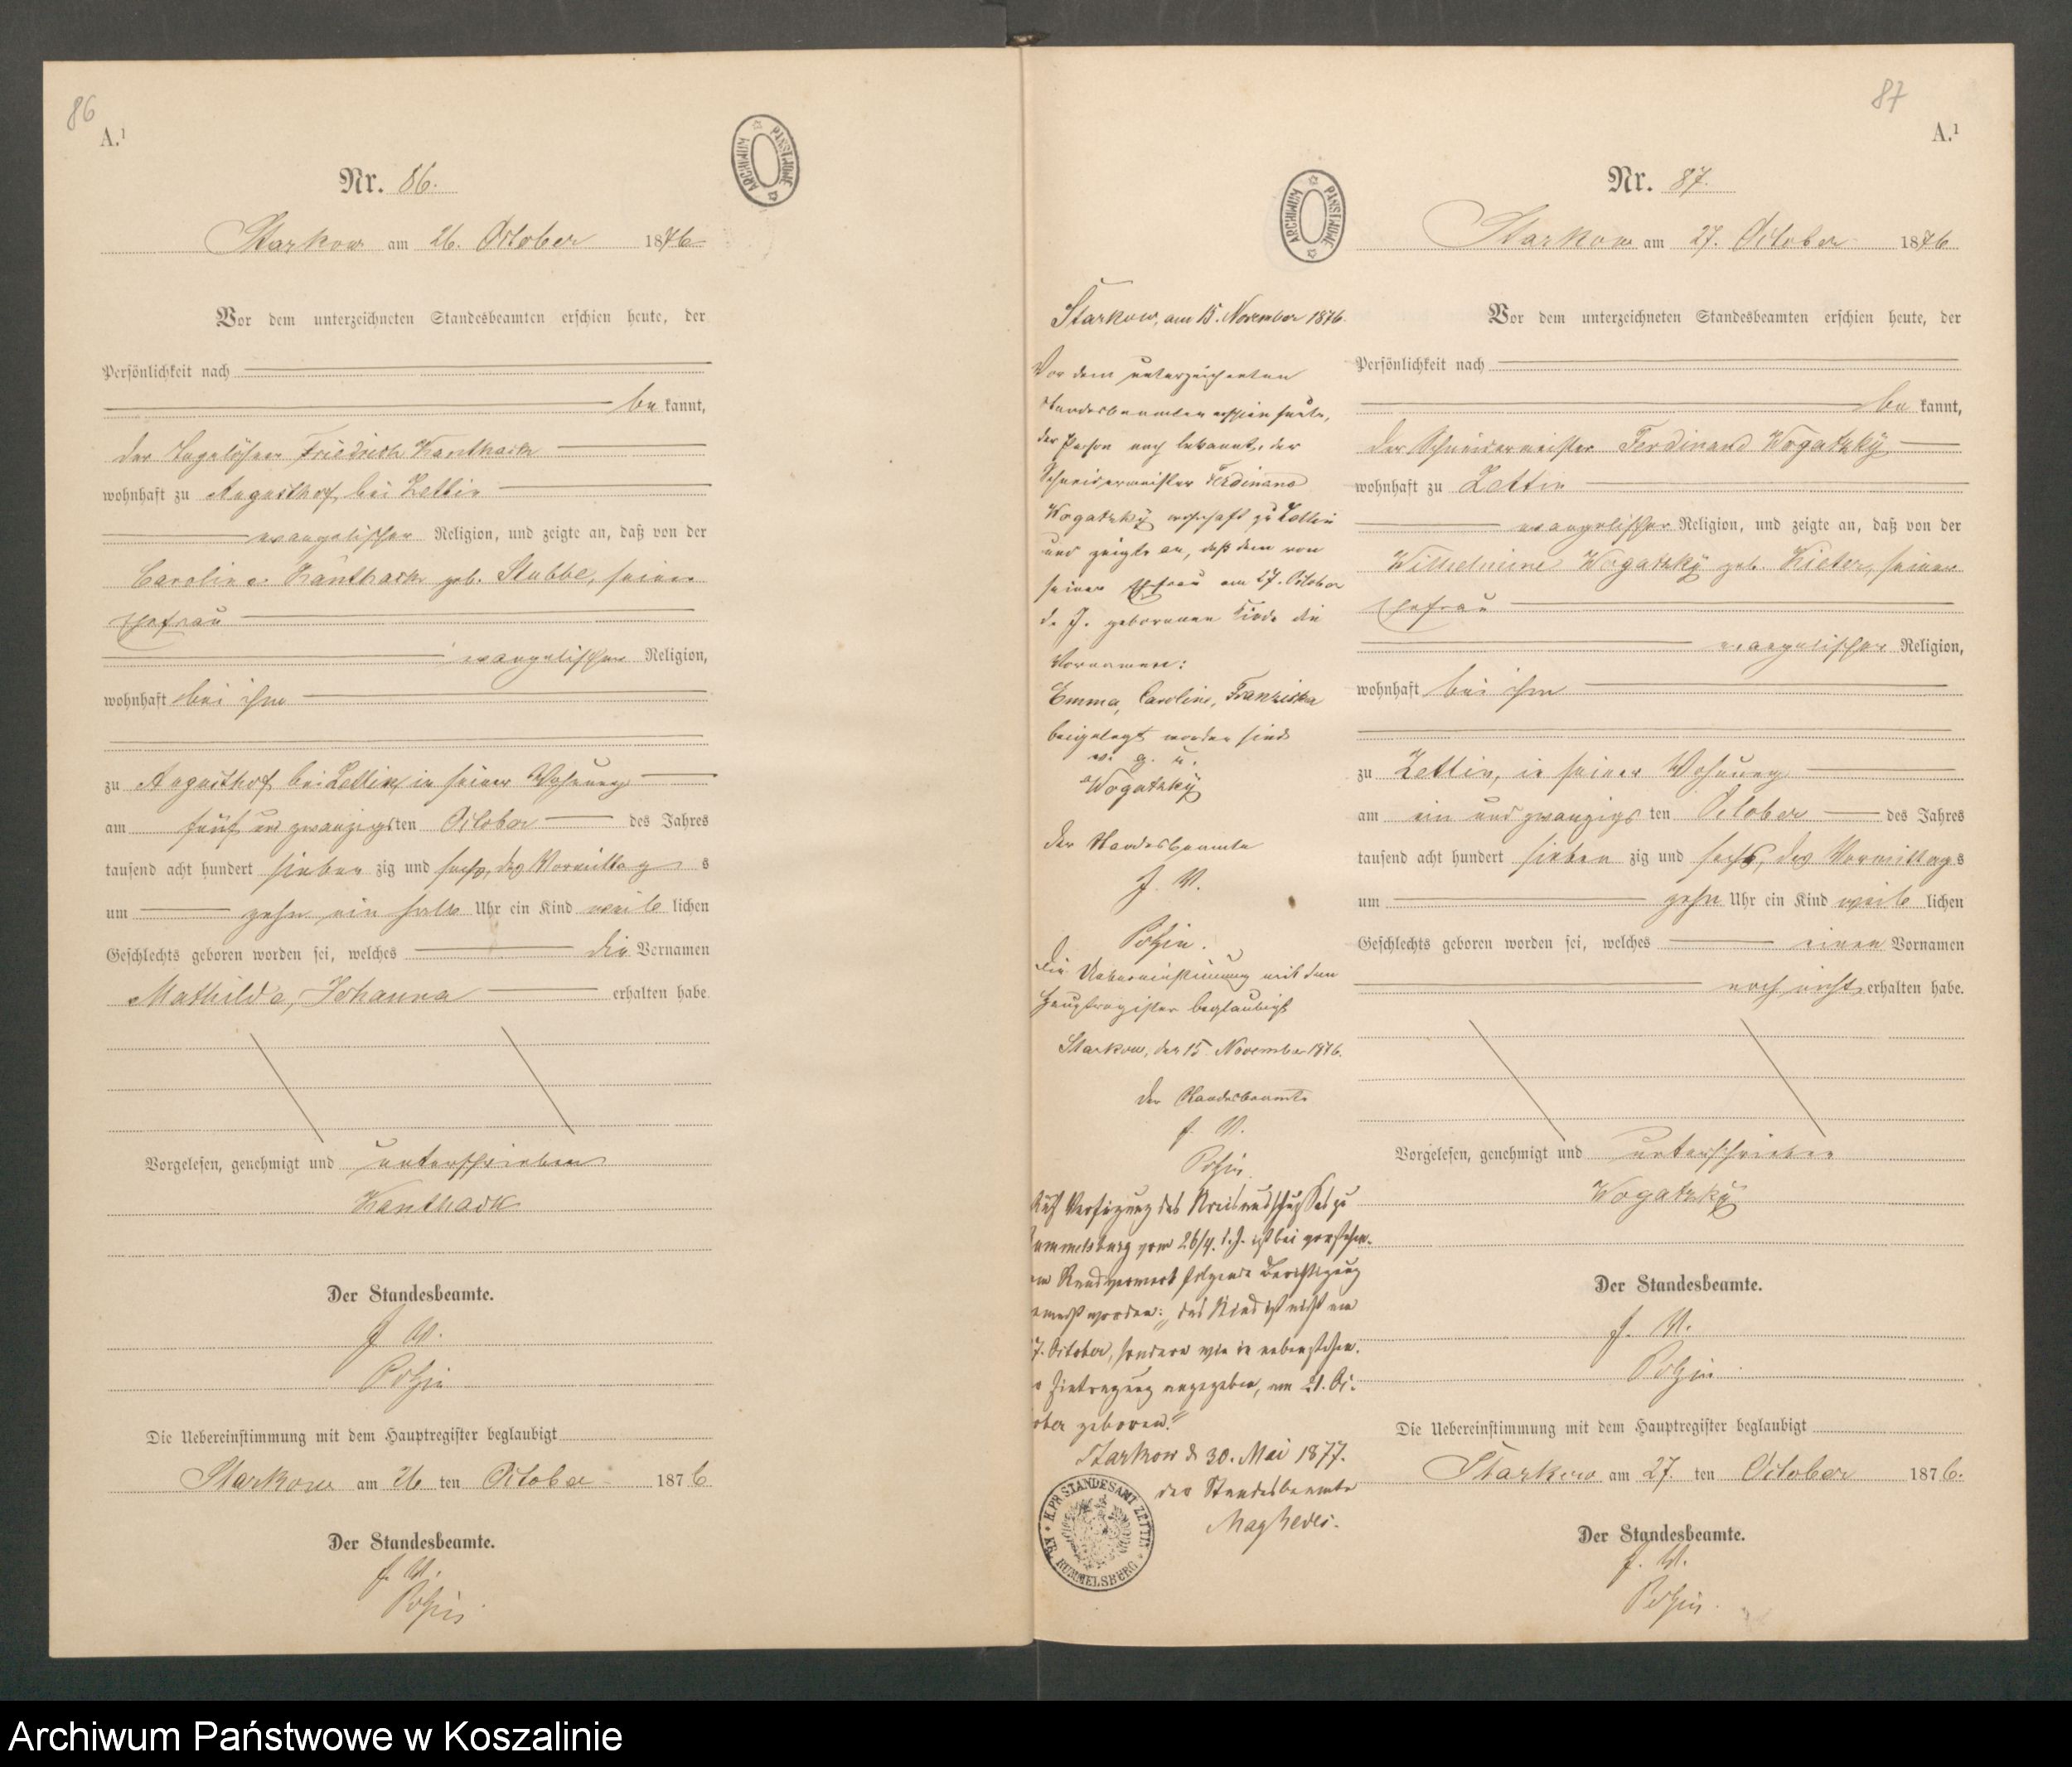 86
A.¹
ARCHIWUM PAŃSTWOWE
Nr. 86.
Starkow am 26. October 1876
Vor dem unterzeichneten Standesbeamten erschien heute, der
Persönlichkeit nach
be kannt,
der Tagelöhner Friedrich Kanthack
wohnhaft zu Augusthof bei Zettin
evangelischer Religion, und zeigte an, daß von der
Caroline Kanthack geb. Stubbe, seiner
Ehefrau
evangelischer Religion,
wohnhaft bei ihm
zu Augusthof bei Zettin, in seiner Wohnung
am fünf und zwanzigsten October des Jahres
tausend acht hundert sieben zig und sechs, des Vormittag s
um zehn ein halb Uhr ein Kind weib lichen
Geschlechts geboren worden sei, welches die Vornamen
Mathilde, Johanna erhalten habe.
Vorgelesen, genehmigt und unterschrieben
Kanthack
Der Standesbeamte.
J. V.
Polzin
Die Uebereinstimmung mit dem Hauptregister beglaubigt
Starkow am 26 ten October 1876
Der Standesbeamte.
J. V.
Polzin
87
A.¹
ARCHIWUM PAŃSTWOWE
Nr. 87.
Starkow am 27. October 1876
Starkow, am 15. November 1876.
Vor dem unterzeichneten
Standesbeamten erschien heute,
der Person nach bekannt, der
Schneidermeister Ferdinand
Wogatzky wohnhaft zu Zettin
und zeigte an, daß dem von
seiner Ehefrau am 27. October
d. J. geborenen Kinde die
Vornamen:
Emma, Caroline, Franziska
beigelegt worden sind
v. g. u.
Wogatzky
Der Standesbeamte
J. V.
Polzin.
Die Uebereinstimmung mit dem
Hauptregister beglaubigt
Starkow, den 15. November 1876.
Der Standesbeamte
J. V.
Polzin.
Auf Verfügung des Kreisausschusses zu
Rummelsburg vom 26/4. d. J. ist bei vorstehen-
Randvermerk folgende Berichtigung
gemacht worden: "das Kind ist nicht am
27. October, sondern wie in nebenstehen-
Eintragung angegeben, am 21. Oc-
tober geboren."
Starkow d 30. Mai 1877.
der Standesbeamte
K. PR. STANDESAMT ZETTIN * KR. RUMMELSBURG *
Vor dem unterzeichneten Standesbeamten erschien heute, der
Persönlichkeit nach
be kannt,
der Schneidermeister Ferdinand Wogatzky
wohnhaft zu Zettin
evangelischer Religion, und zeigte an, daß von der
Wilhelmine Wogatzky geb. Kieter, seiner
Ehefrau
evangelischer Religion,
wohnhaft bei ihm
zu Zettin, in seiner Wohnung
am ein und zwanzigs ten October des Jahres
tausend acht hundert sieben zig und sechs, des Vormittags
um zehn Uhr ein Kind weib lichen
Geschlechts geboren worden sei, welches einen Vornamen
noch nicht erhalten habe.
Vorgelesen, genehmigt und unterschrieben
Wogatzky
Der Standesbeamte.
J. V.
Polzin
Die Uebereinstimmung mit dem Hauptregister beglaubigt
Starkow am 27. ten October 1876.
Der Standesbeamte.
J. V.
Polzin.
Archiwum Państwowe w Koszalinie